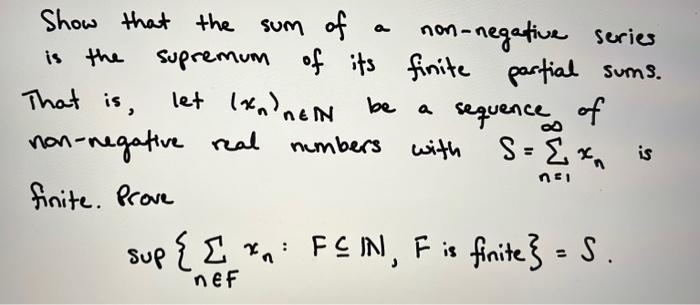 Show that the sum of a non-negative series
is the supremum of its finite partial sums.
That is, let (xₙ)ₙ∈ℕ be a sequence of
non-negative real numbers with S = ∑_{n=1}^{∞} xₙ is
finite. Prove
sup { ∑_{n∈F} xₙ : F ⊆ ℕ, F is finite } = S.